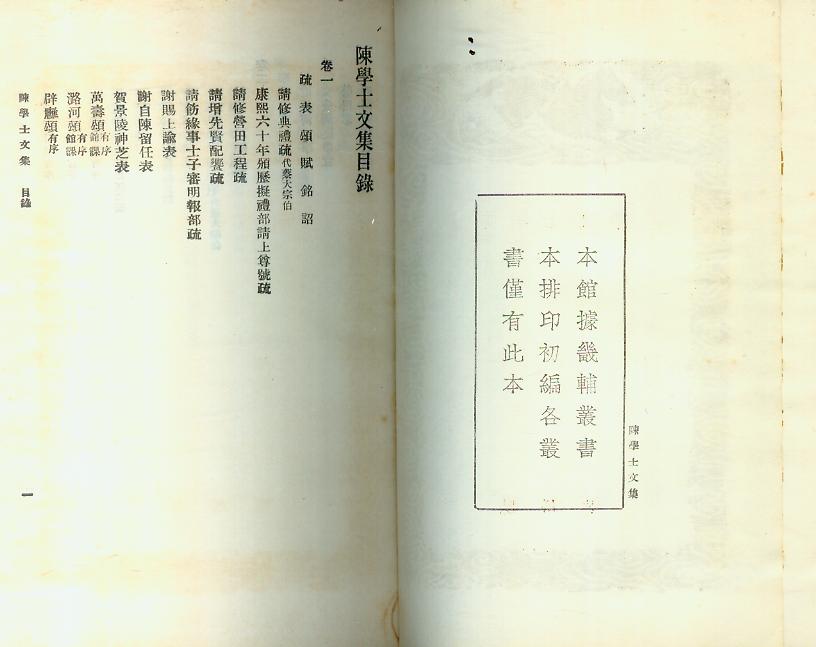 本館據畿輔叢書
本排印初編各叢
書僅有此本
陳學士文集
陳學士文集目錄
卷一
疏 表 頌 賦 銘 詔
請修典禮疏代蔡大宗伯
康熙六十年頒曆擬禮部請上尊號疏
請修營田工程疏
請增先賢配饗疏
請飭緣事士子審明報部疏
謝賜上諭表
謝自陳留任表
賀景陵神芝表
萬壽頌有序館課
潞河頌有序館課
辟廱頌有序
陳學士文集 目錄
一